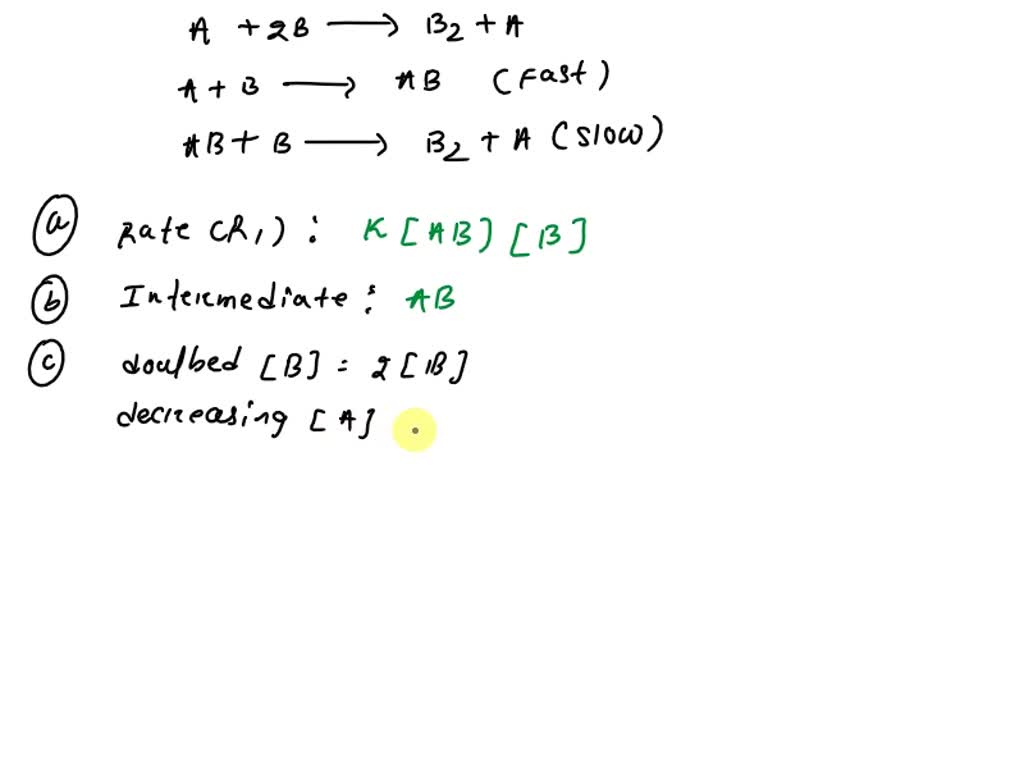 A + 2B ⟶ B₂ + A
A + B ⟶ AB (Fast)
AB + B ⟶ B₂ + A (Slow)
(a) Rate (R₁) : K [AB] [B]
(b) Intermediate : AB
(c) doulbed [B] = 2[B]
decreasing [A]